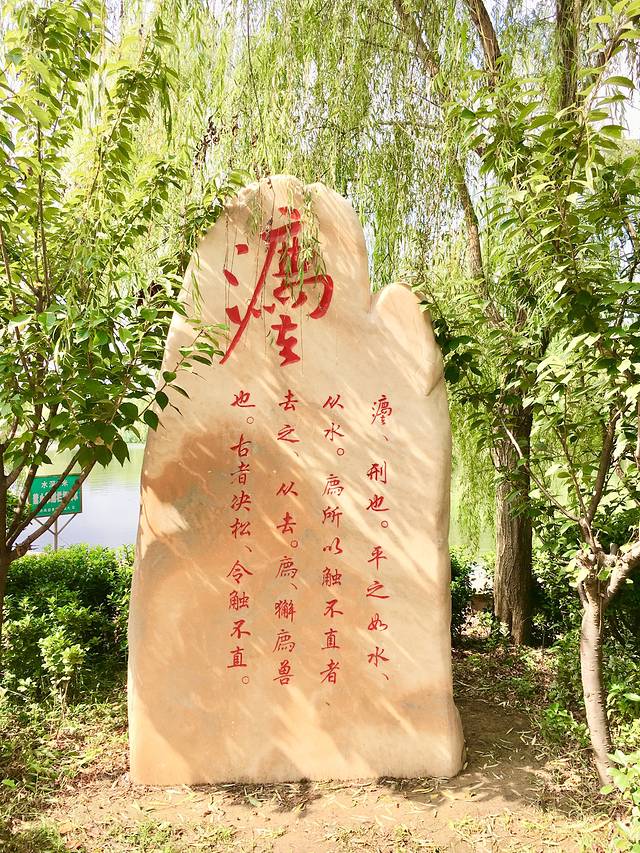 灋
灋、刑也。平之如水、
从水。廌所以触不直者
去之、从去。廌、獬廌兽
也。古者决松、令触不直。
水深